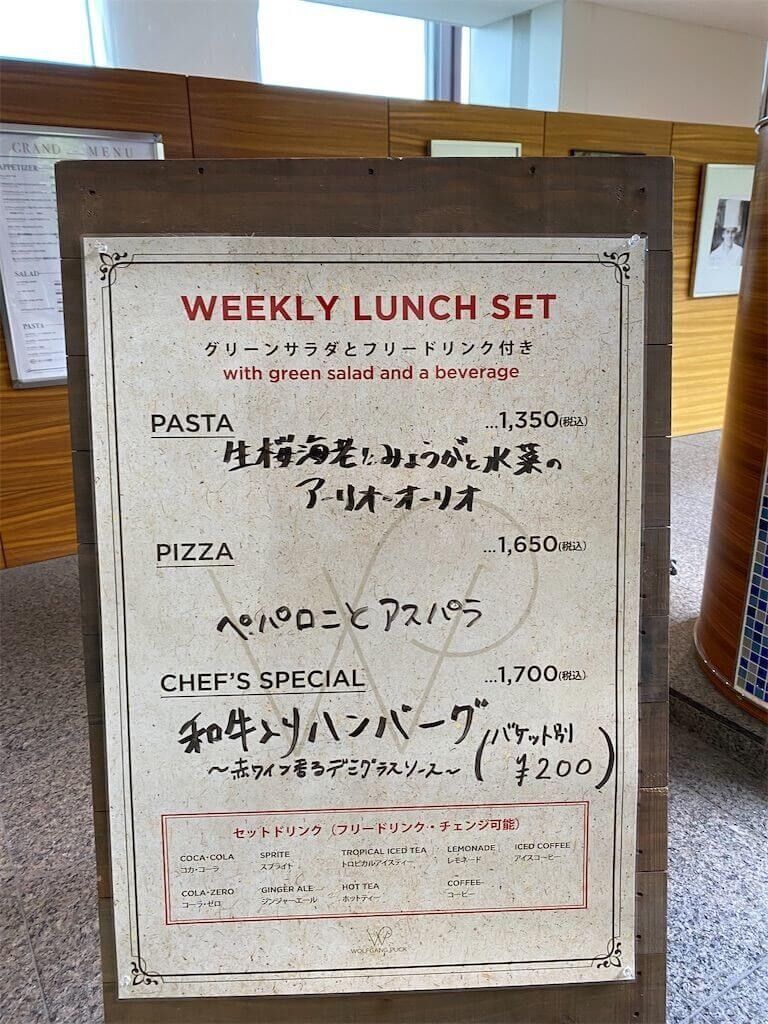 GRAND MENU
APPETIZER
SALAD
PASTA
WEEKLY LUNCH SET
グリーンサラダとフリードリンク付き
with green salad and a beverage
PASTA ...1,350(税込)
生桜海老とみょうがと水菜の
アーリオ・オーリオ
PIZZA ...1,650(税込)
ペパロニとアスパラ
CHEF'S SPECIAL ...1,700(税込)
和牛入りハンバーグ
~赤ワイン香るデミグラスソース~
(バケット別
¥200)
セットドリンク(フリードリンク・チェンジ可能)
COCA・COLA SPRITE TROPICAL ICED TEA LEMONADE ICED COFFEE
コカ・コーラ スプライト トロピカルアイスティー レモネード アイスコーヒー
COLA・ZERO GINGER ALE HOT TEA COFFEE
コーラ・ゼロ ジンジャーエール ホットティー コーヒー
WP
WOLFGANG PUCK